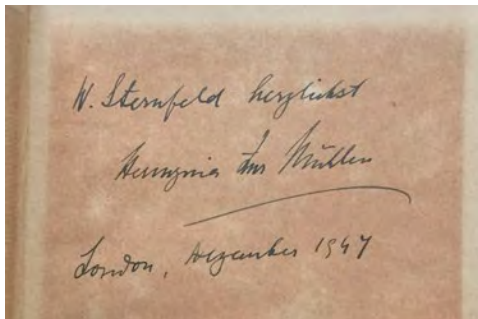 W. Sternfeld herzlichst
Hermynia Zur Mühlen
London, Dezember 1947